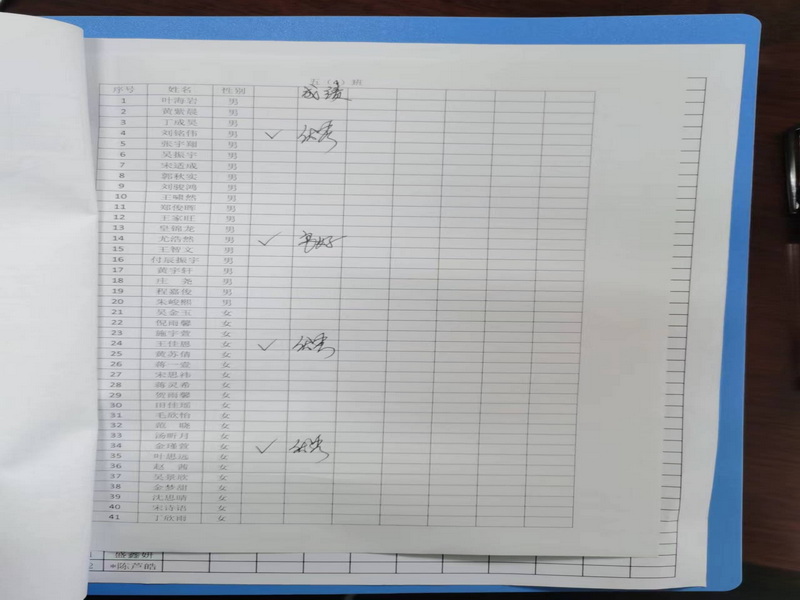 五（4）班
序号 姓名 性别 成绩
1 叶海岩 男
2 黄紫晨 男
3 丁成昊 男
4 刘铭伟 男 ✓ 优秀
5 张宇翔 男
6 吴振宇 男
7 宋适成 男
8 郭秋实 男
9 刘骏鸿 男
10 王啸然 男
11 郑俊晖 男
12 王家旺 男
13 皇锦龙 男
14 尤浩然 男 ✓ 良好
15 王智文 男
16 付宸振宇 男
17 黄宇轩 男
18 庄尧 男
19 程嘉俊 男
20 朱峻熙 男
21 吴金玉 女
22 倪雨馨 女
23 施宇萱 女
24 王佳恩 女 ✓ 优秀
25 黄苏倩 女
26 蒋一萱 女
27 宋思祎 女
28 蒋灵希 女
29 贺雨馨 女
30 田佳瑶 女
31 毛欣怡 女
32 范晓 女
33 汤昕月 女
34 金瑾萱 女 ✓ 优秀
35 叶思远 女
36 赵茜 女
37 吴景欣 女
38 金梦甜 女
39 沈思晴 女
40 宋诗语 女
41 丁欣雨 女
盛鑫妍
*陈芦皓